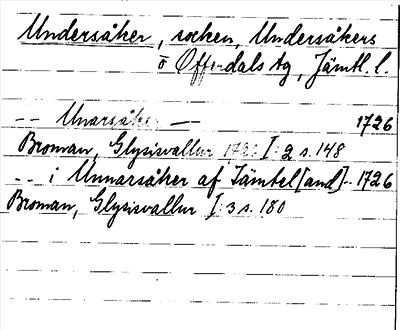 Undersåker, socken, Undersåkers
o Offerdals tg, Jämtl. l.
-- Unarsåker — 1726
Broman, Glysisvallur I:2 s. 148
-- i Unnarsåker af Jämtel[and]-- 1726
Broman, Glysisvallur I:3 s. 180